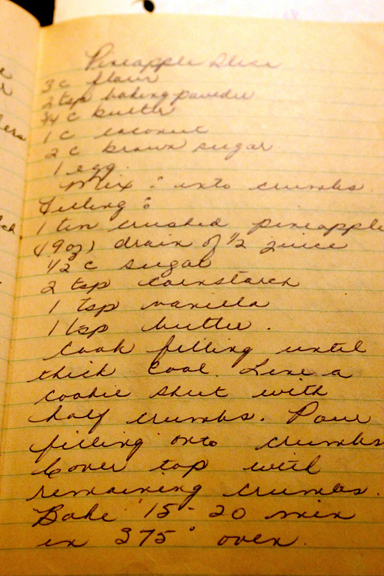 Pineapple Slice
3 c flour
2 tsp baking powder
3/4 c butter
1 c coconut
2 c brown sugar
1 egg.
Mix : into crumbs
Filling :
1 tin crushed pineapple
(19 oz) drain of 1/2 juice
1/2 c sugar
2 tsp cornstarch
1 tsp vanilla
1 tsp butter.
Cook filling until
thick cool. Line a
cookie sheet with
half crumbs. Pour
filling onto crumbs
Cover top with
remaining crumbs.
Bake 15 - 20 min
in 375° oven.